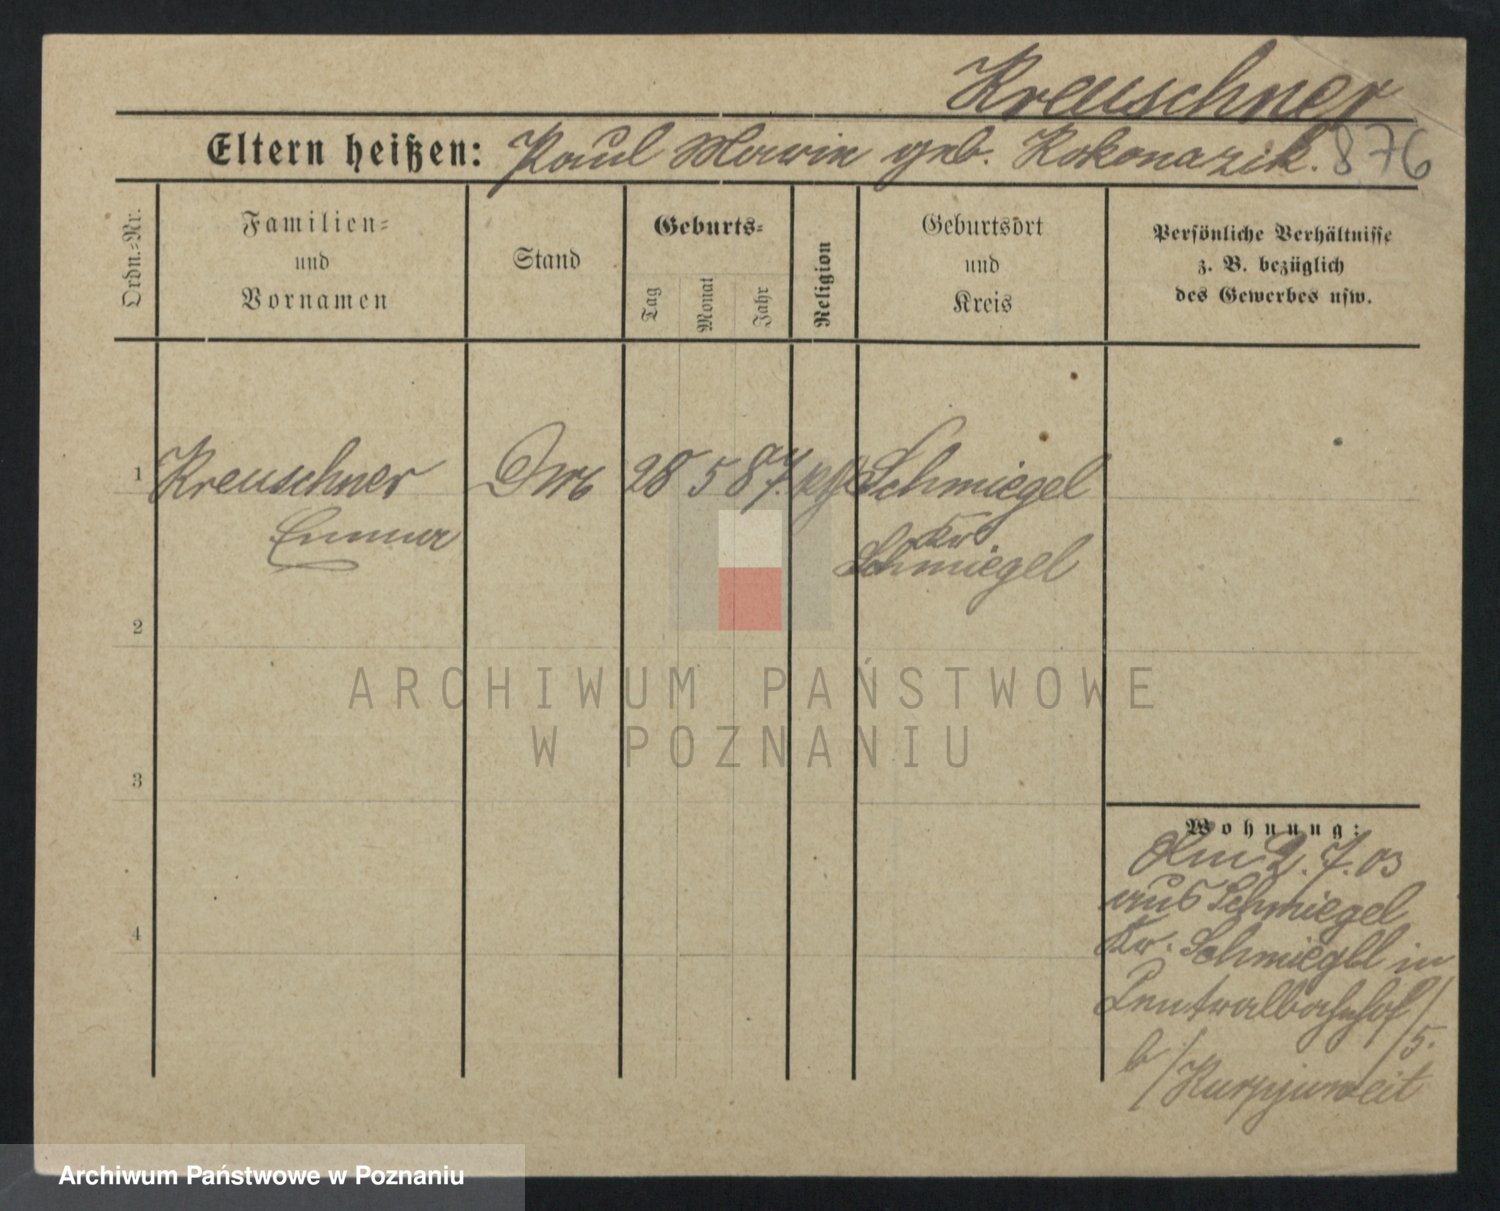 Kreuschner
Eltern heißen: Paul Marie geb. Kokonazik. 876
Ordn.=Nr.
Familien=
und
Vornamen
Stand
Geburts=
Tag
Monat
Jahr
Religion
Geburtsort
und
Kreis
Persönliche Verhältnisse
z. B. bezüglich
des Gewerbes usw.
1 Kreuschner 28 5 87. Schmiegel
Emma Kr
Schmiegel
2
3
4
Wohnung:
Am 2.7.03
aus Schmiegel
Kr. Schmiegel in
Centralbahnhof
b/ /5.
ARCHIWUM PAŃSTWOWE
W POZNANIU
Archiwum Państwowe w Poznaniu